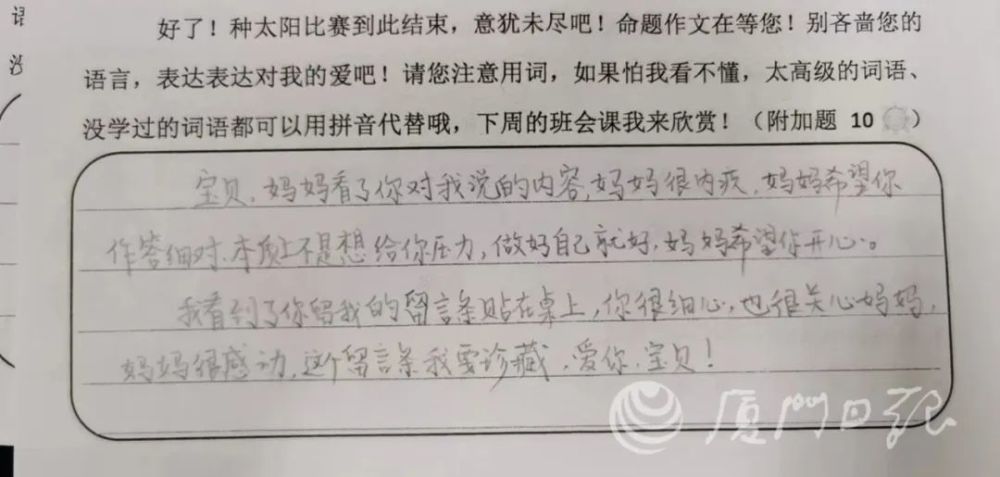 好了！种太阳比赛到此结束，意犹未尽吧！命题作文在等您！别吝啬您的
语言，表达表达对我的爱吧！请您注意用词，如果怕我看不懂，太高级的词语、
没学过的词语都可以用拼音代替哦，下周的班会课我来欣赏！（附加题 10 ）
宝贝，妈妈看了你对我说的内容，妈妈很内疚，妈妈希望你
作答细对，本质上不是想给你压力，做好自己就好，妈妈希望你开心。
我看到了你留我的留言条贴在桌上，你很细心，也很关心妈妈，
妈妈很感动，这个留言条我要珍藏，爱你，宝贝！
厦门日报